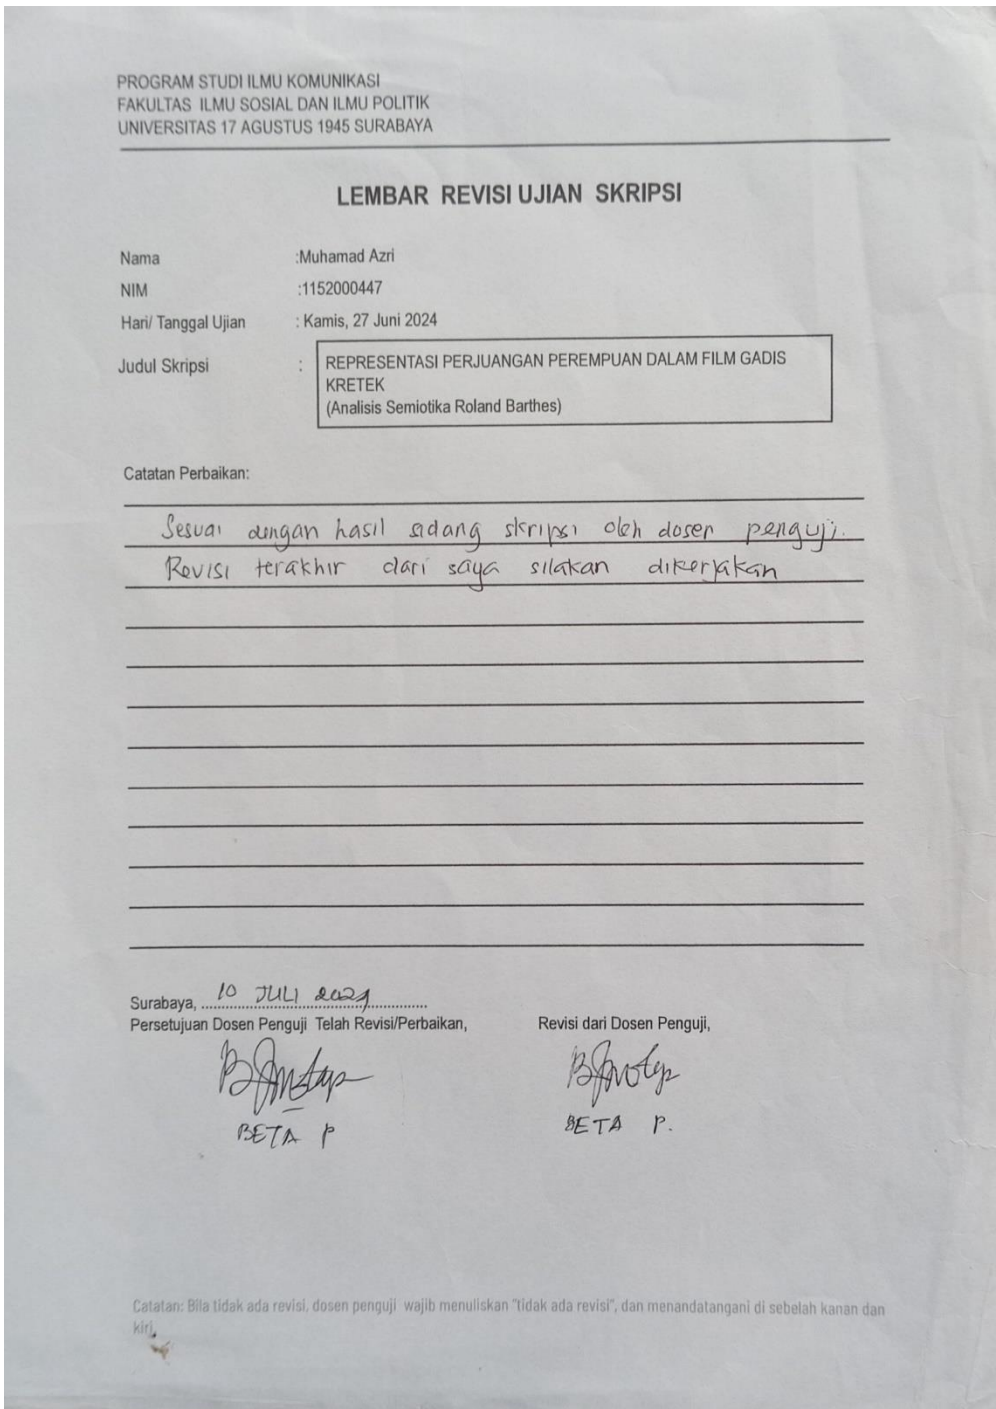 PROGRAM STUDI ILMU KOMUNIKASI
FAKULTAS ILMU SOSIAL DAN ILMU POLITIK
UNIVERSITAS 17 AGUSTUS 1945 SURABAYA
LEMBAR REVISI UJIAN SKRIPSI
Nama :Muhamad Azri
NIM :1152000447
Hari/ Tanggal Ujian : Kamis, 27 Juni 2024
Judul Skripsi : REPRESENTASI PERJUANGAN PEREMPUAN DALAM FILM GADIS
KRETEK
(Analisis Semiotika Roland Barthes)
Catatan Perbaikan:
Sesuai dengan hasil sidang skripsi oleh dosen penguji.
Revisi terakhir dari saya silakan dikerjakan
Surabaya, 10 JULI 2024
Persetujuan Dosen Penguji Telah Revisi/Perbaikan, Revisi dari Dosen Penguji,
BETA P BETA P.
Catatan: Bila tidak ada revisi, dosen penguji wajib menuliskan "tidak ada revisi", dan menandatangani di sebelah kanan dan
kiri.